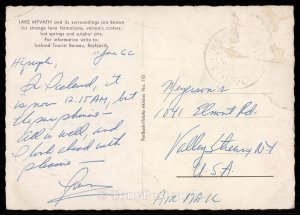 LAKE MYVATN and its surroundings are known
for strange lava formations, volcanic craters,
hot springs and sulphur pits.
For information write to:
Iceland Tourist Bureau, Reykjavik.
11 June 62
Hi people,
In Iceland, it
is now 12:15 AM, but
the sun shines —
All is well, and
I look ahead with
pleasure —
Meyerson's
1041 Elmont Rd.
Valley Stream, NY
U.S.A.
AIR MAIL